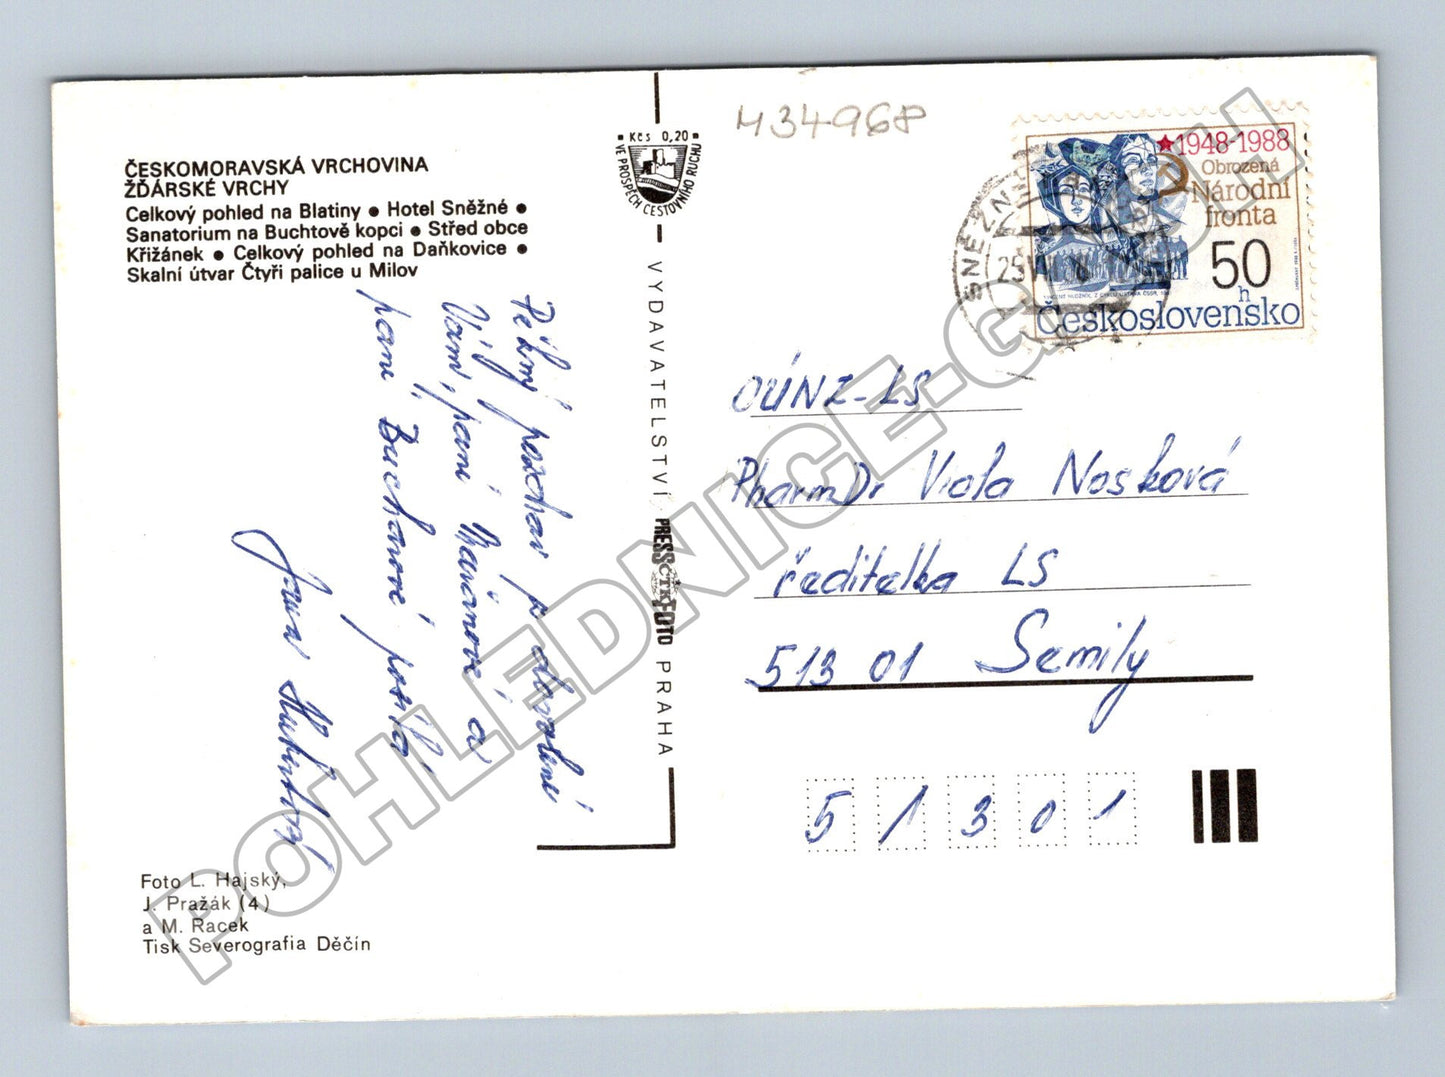 ČESKOMORAVSKÁ VRCHOVINA
ŽĎÁRSKÉ VRCHY
Celkový pohled na Blatiny ● Hotel Sněžné ●
Sanatorium na Buchtově kopci ● Střed obce
Křižánek ● Celkový pohled na Daňkovice ●
Skalní útvar Čtyři palice u Milov
Kčs 0,20
VE PROSPĚCH CESTOVNÍHO RUCHU
434968
★1948-1988
Obrozená
Národní
fronta
50
h
Československo
SNĚŽNÉ
25 VII
VYDAVATELSTVÍ PRESSČTKFOTO PRAHA
Pěkný pozdrav z dovolené
Vám, paní
paní Bucharové posílá
Jana
OÚNZ-LS
PharmDr Viola Nosková
ředitelka LS
513 01 Semily
5 1 3 0 1
Foto L. Hajský,
J. Pražák (4)
a M. Racek
Tisk Severografia Děčín
POHLEDNICE-GUTH